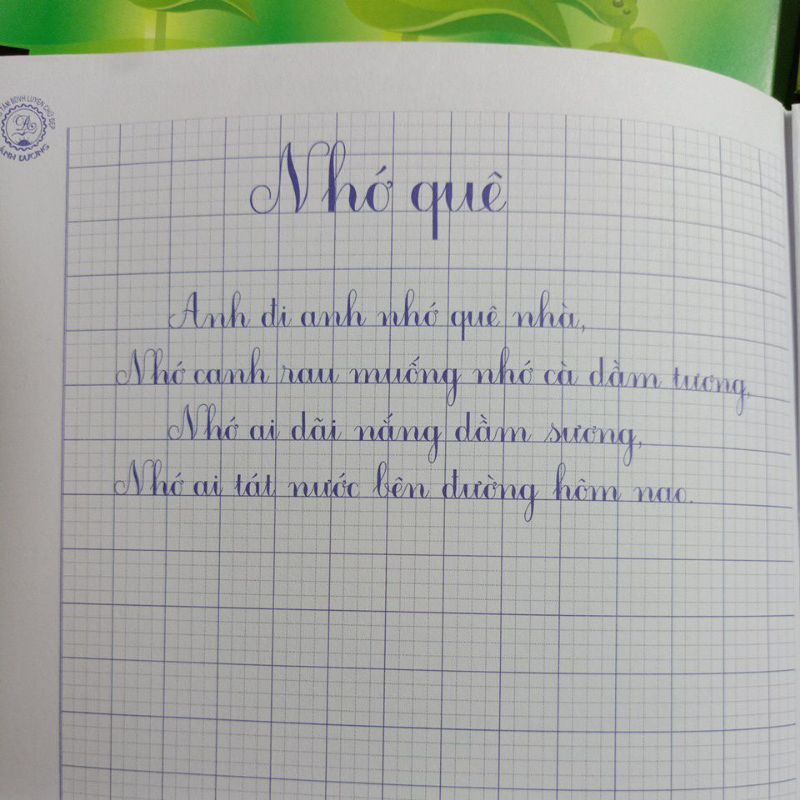 TÂM BỒI LUYỆN CHỮ ĐẸP
ÁNH DƯƠNG
Nhớ quê
Anh đi anh nhớ quê nhà,
Nhớ canh rau muống nhớ cà dầm tương,
Nhớ ai dãi nắng dầm sương,
Nhớ ai tát nước bên đường hôm nao.